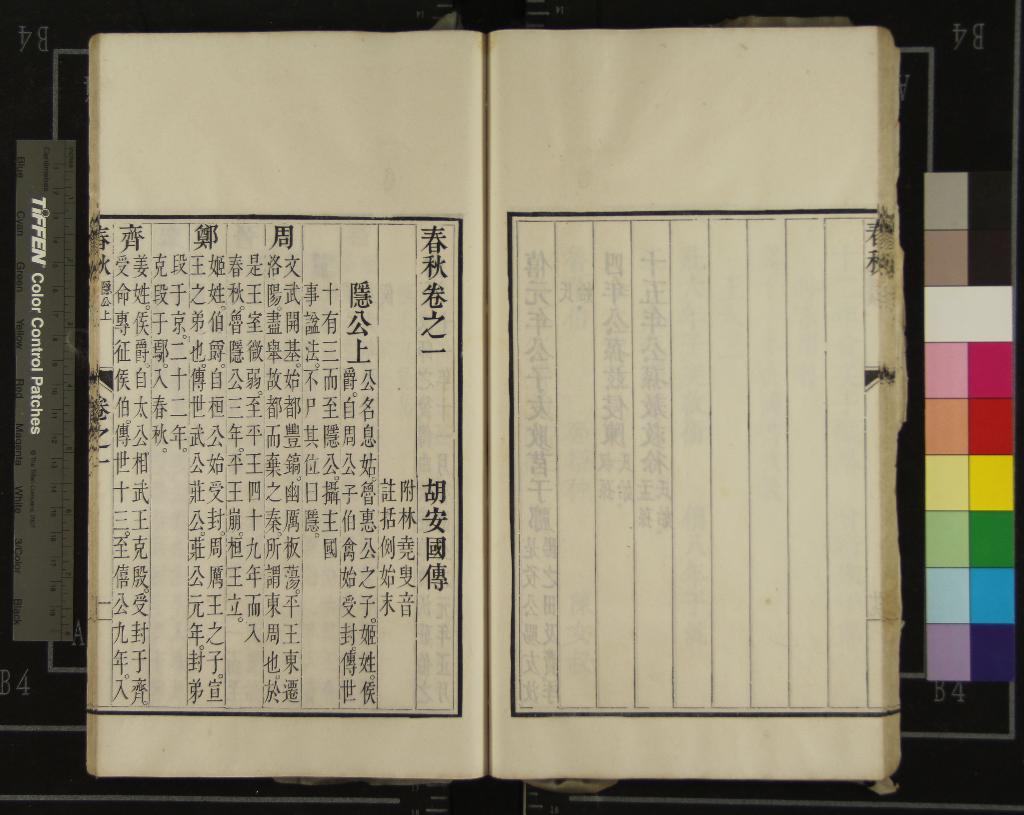 春秋卷之一
胡安國傳
附林堯叟音
註括例始末
隱公上
公名息姑。魯惠公之子。姬姓。侯
爵。自周公子伯禽始受封。傳世
十有三而至隱公。攝主國
事。諡法。不尸其位曰隱。
周
文武開基。始都豐鎬。幽厲板蕩。平王東遷
洛陽。盡舉故都而棄之秦。所謂東周也。於
是王室微弱。至平王四十九年而入
春秋。魯隱公三年。平王崩。桓王立。
鄭
姬姓。伯爵。自桓公始受封。周厲王之子。宣
王之弟也。傳世武公莊公。莊公元年。封弟
段于京。二十二年。
克段于鄢。入春秋。
齊
姜姓。侯爵。自太公相武王克殷。受封于齊。
受命專征侯伯。傳世十三。至僖公九年。入
春秋
隱公上
卷之一
一
春秋
TIFFEN Color Control Patches
Blue
Cyan
Green
Yellow
Red
Magenta
White
3/Color
Black
B4
B4
B4
B4
A